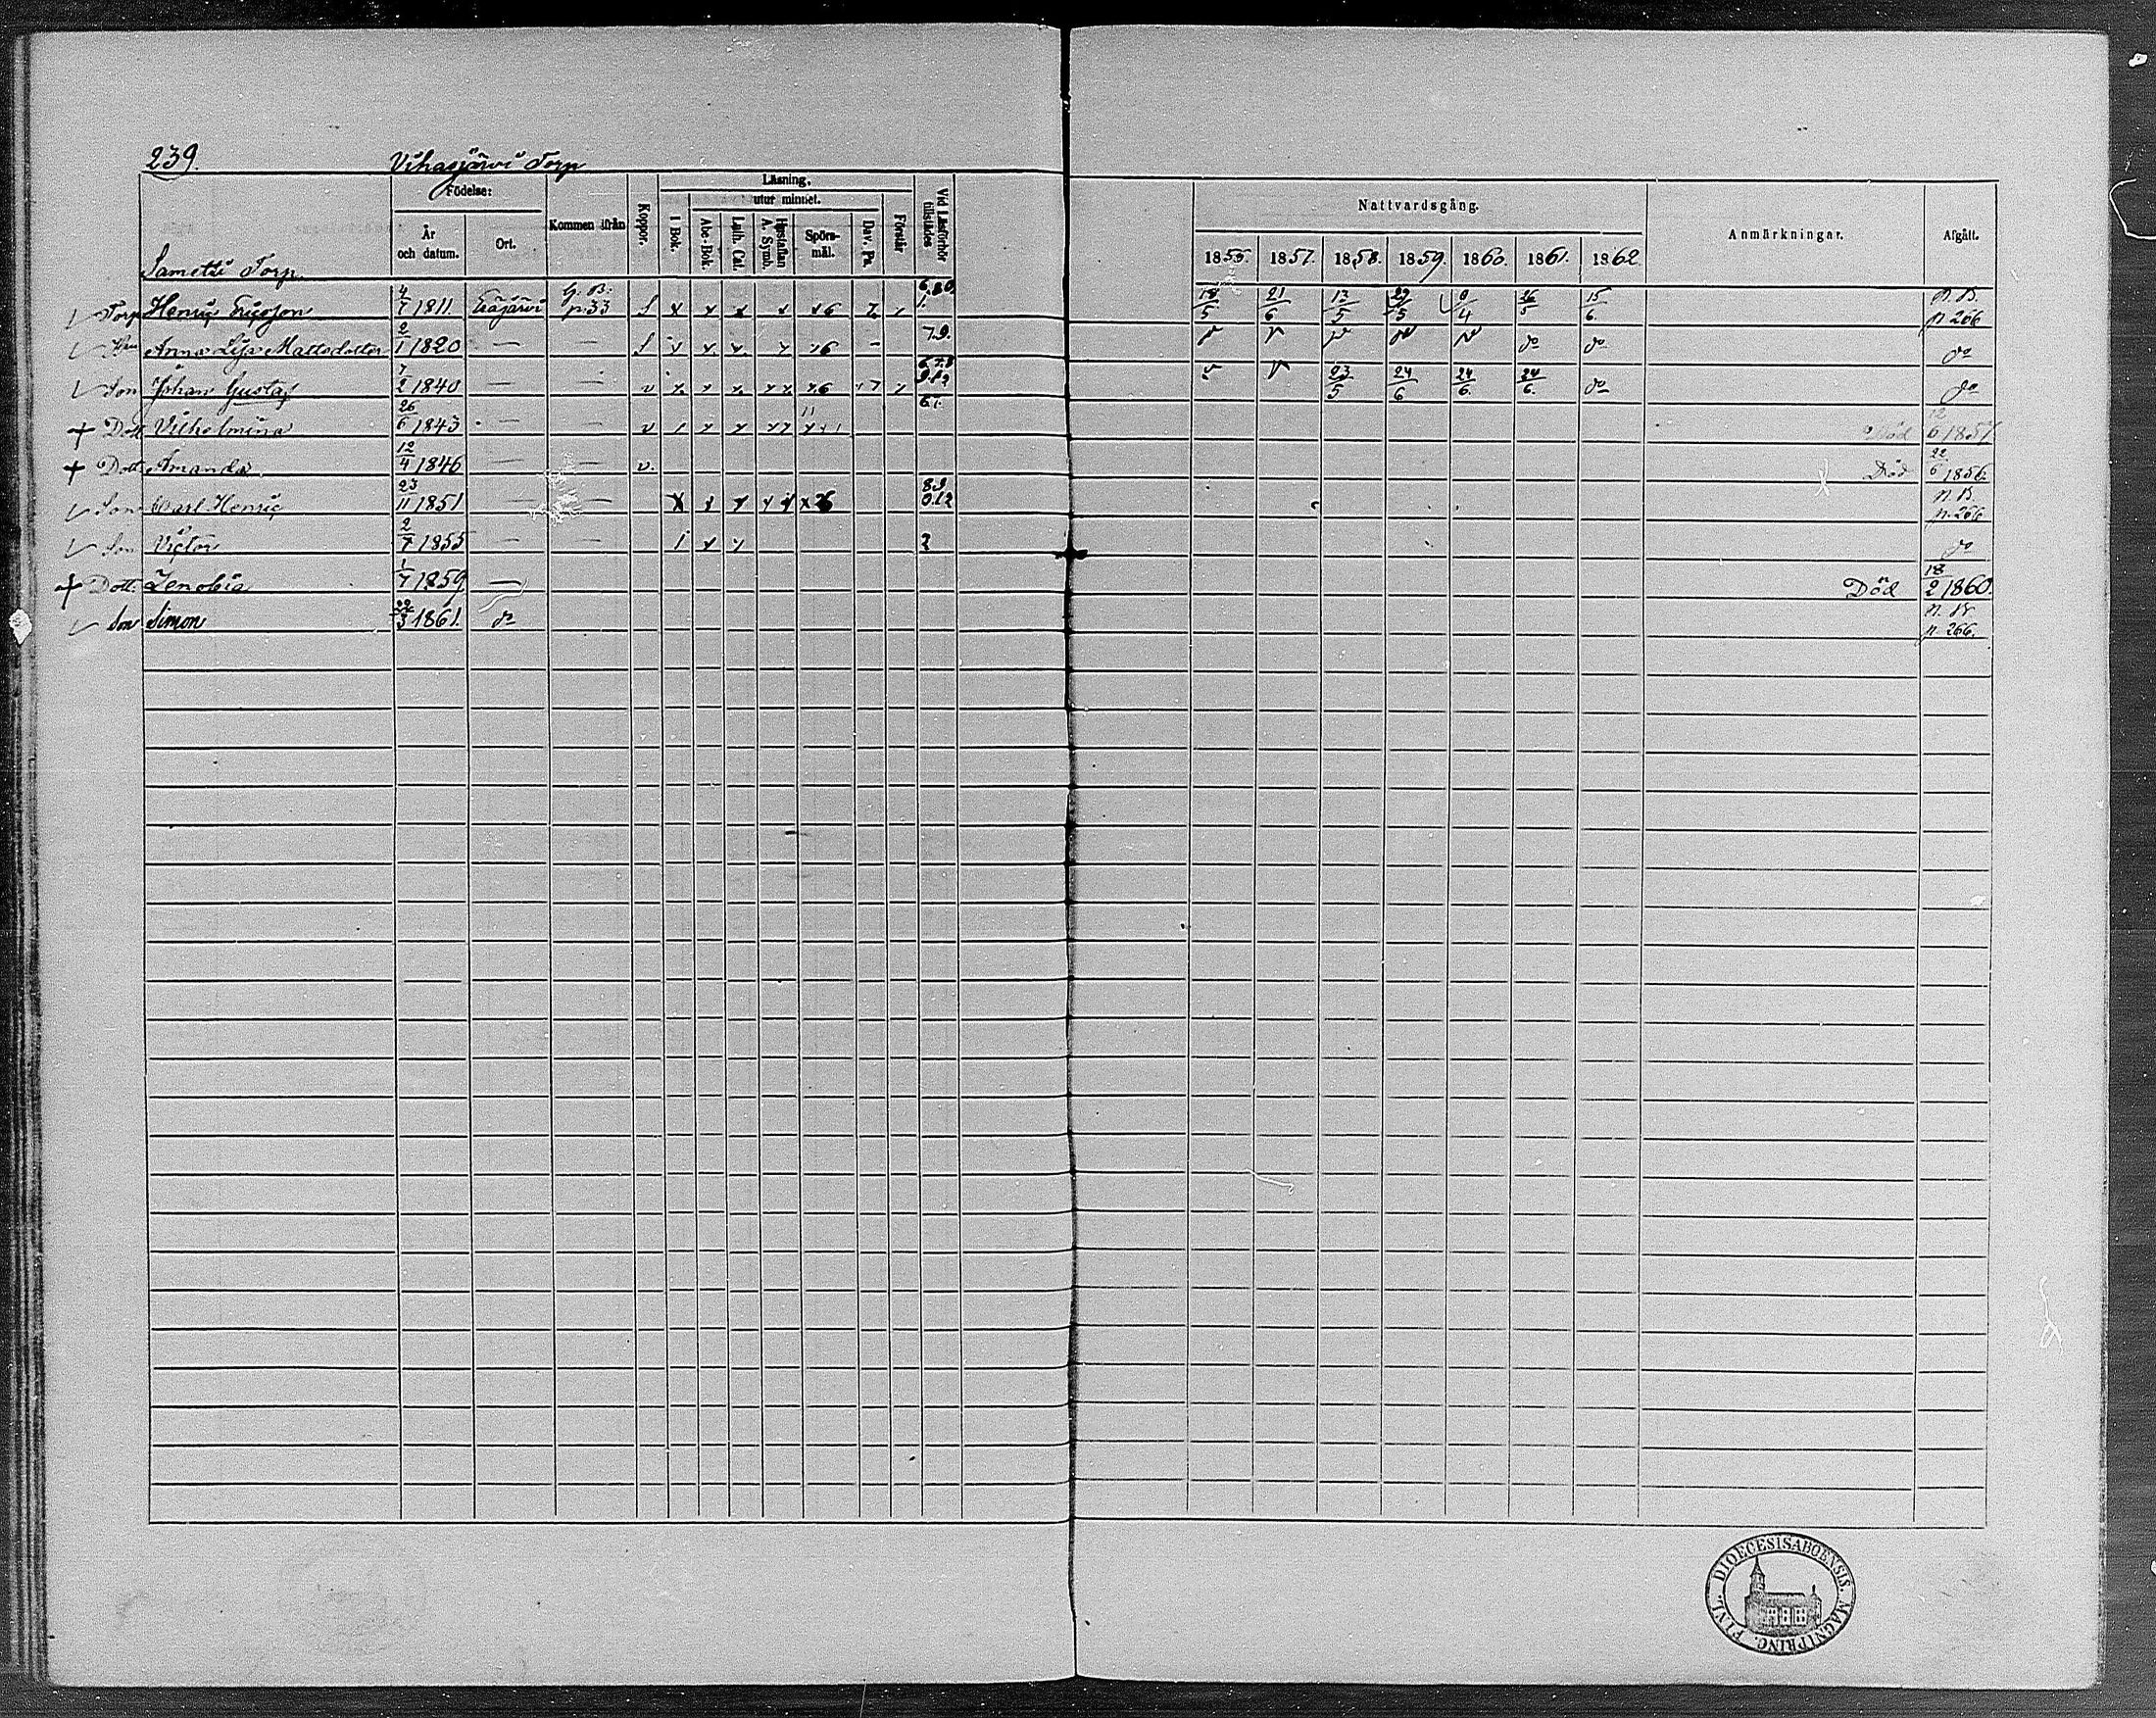 239.
Vihasjärvi Torp
Födelse:
År och datum.
Ort.
Kommen ifrån
Koppor.
Läsning.
I Bok.
utur minnet.
Abc-Bok.
Luth. Cat.
Hustaflan A. Symb.
Spörsmål.
Dav. Ps.
Förstår
Vid Läsförhör tillstädes
Nattvardsgång.
1855. 1857. 1858. 1859. 1860. 1861. 1862.
Anmärkningar.
Afgått.
Sametti Torp.
Torp Henric Ericsson 4/7 1811. Eräjärvi G. B. p. 33 18/5 21/6 13/5 29/5 9/4 26/5 15/6. N. B. p. 266
Hu Anna Lisa Mattsdotter 2/1 1820 — — 7.9. do do do
Son Johan Gustaf 7/2 1840 — — 23/5 24/6 24/6. 24/6. do do
+ Dott Vilhelmina 26/6 1843 — — Död 12/6 1857
+ Dott. Amanda 12/4 1846 — — v. Död 22/6 1856.
Son Carl Henric 23/11 1851 — — N. B. p. 266
Son Victor 2/7 1855 — — 2 do
+ Dott. Zenobia 1/7 1859. — Död 18/2 1860.
Son Simon 22/3 1861. do N. B. p. 266.
FINL. DIOECESIS ABOENSIS. MAGNI PRINC.